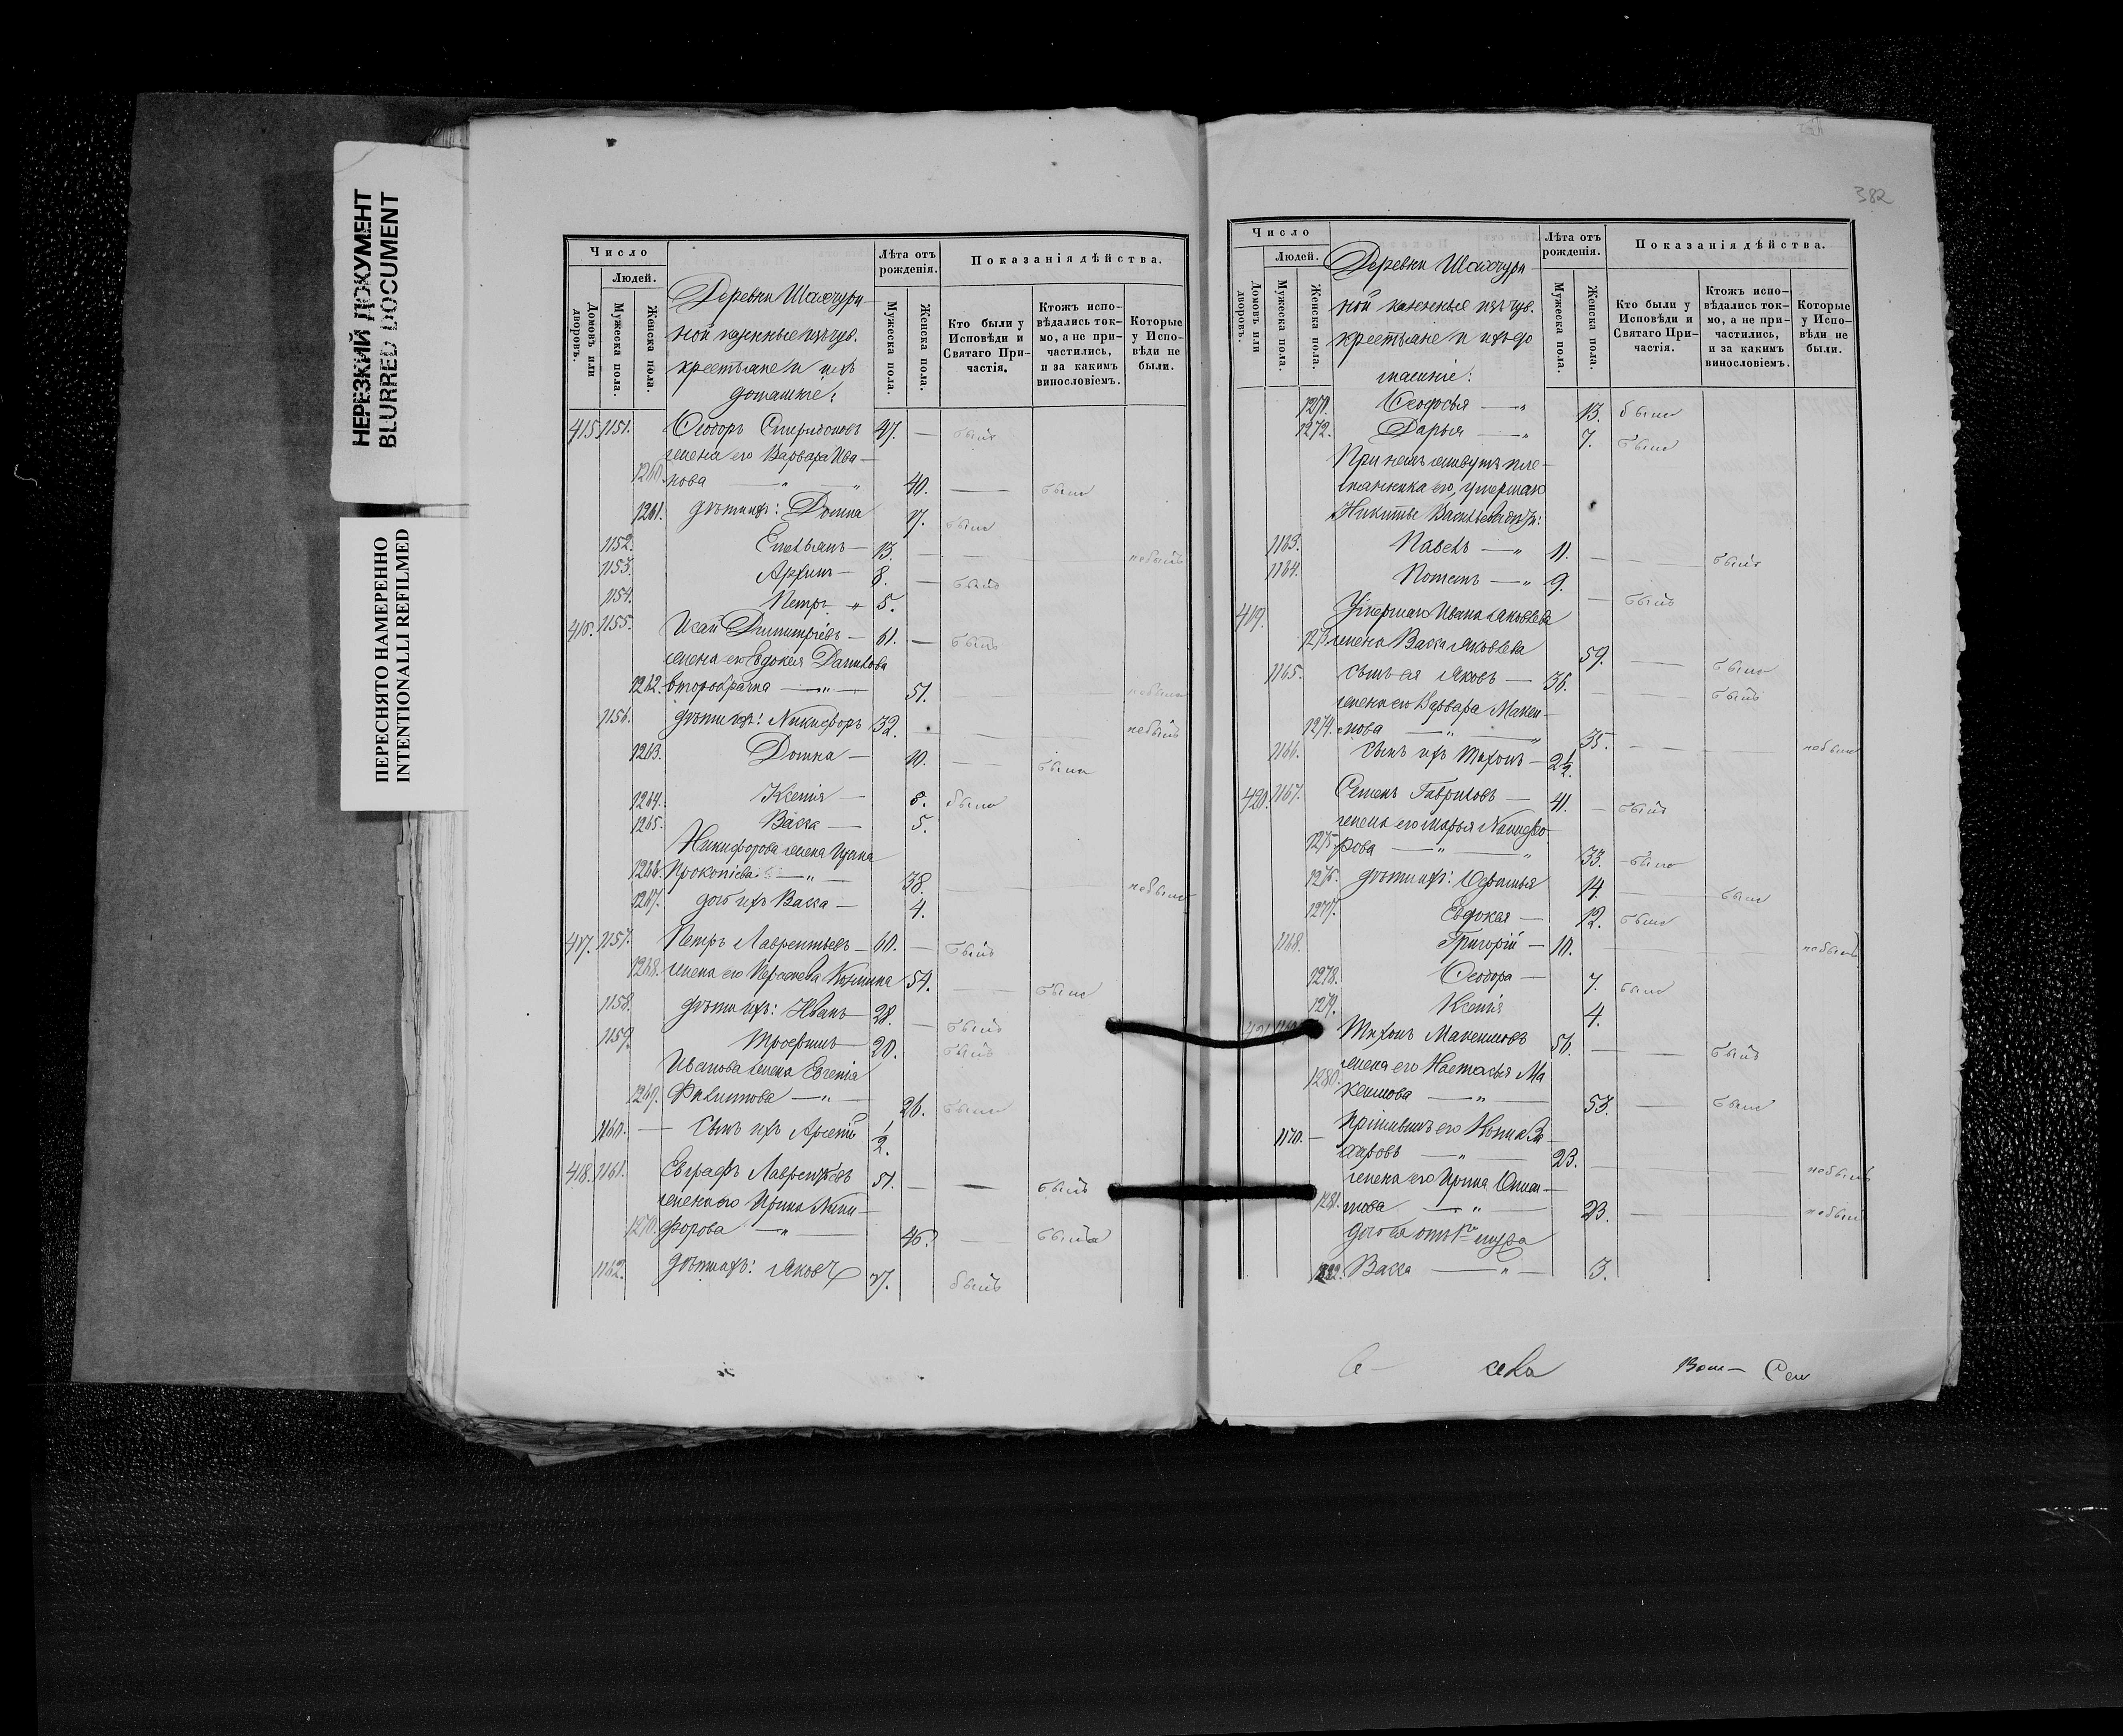 НЕРЕЗКИЙ ДОКУМЕНТ
BLURRED DOCUMENT
ПЕРЕСНЯТО НАМЕРЕННО
INTENTIONALLI REFILMED
Число
Людей.
Домовъ или дворовъ.
Мужеска пола.
Женска пола.
Деревни
ной казенные изъ чув.
крестьяне и ихъ
домашніе:
Лѣта отъ рожденія.
Мужеска пола.
Женска пола.
Показанія дѣйства.
Кто были у Исповѣди и Святаго Причастія.
Ктожъ исповѣдались токмо, а не причастились, и за какимъ винословіемъ.
Которые у Исповѣди не были.
415. 1151. Ѳеодоръ Спиридоновъ 47. — былъ
жена его Варвара Ива-
1260. нова — " — " 40. — была
1261. дѣти ихъ: Домна 17. была
1152. Емельянъ — 13. — — небылъ
1153. Архипъ — 8. — былъ
1154. Петръ " 5.
416. 1155. Исай Димитріевъ — 61. — былъ
жена его Евдокея Данилова
1262. второбрачна — " — 51. — — небыла
1156. дѣти ихъ: Никифоръ 32. — — — небылъ
1263. Домна — 10. — была
1264. Ксенія — 8. была
1265. Васса — 5.
Никифорова жена
1266. Прокопіева — " — 38. — — небыла
1267. дочь ихъ Васса — 4.
417. 1157. Петръ Лаврентьевъ — 60. — былъ
1268. жена его 54. — была
1158. дѣти ихъ: Иванъ — 28. — былъ
1159. Трофимъ — 20. былъ
Иванова жена Евгенія
1269. Филипова — " — 26. была
1160. — Сынъ ихъ Арсеній 1/2.
418. 1161. Евграфъ Лаврентьевъ 51. — — былъ
жена его Ирина Ники-
1270. форова — " — 46. — была
1162. дѣти ихъ: Яковъ 17. былъ
382
Число
Людей.
Домовъ или дворовъ.
Мужеска пола.
Женска пола.
Деревни
ной казенные изъ чув.
крестьяне и ихъ до
машніе:
Лѣта отъ рожденія.
Мужеска пола.
Женска пола.
Показанія дѣйства.
Кто были у Исповѣди и Святаго Причастія.
Ктожъ исповѣдались токмо, а не причастились, и за какимъ винословіемъ.
Которые у Исповѣди не были.
1271. Ѳеодосья — " 13. была
1272. Дарья — " 7. была
При немъ живутъ пле-
мянника его, умершаго
Никиты Васильева дѣти:
1163. Павелъ — " 11. — — былъ
1164. Потапъ — " 9. — былъ
419. Умершаго Ивана Яковлева
1273. жена Васса Яковлева 59. — была
1165. Сынъ ея Яковъ — 36. — — былъ
жена его Варвара Макси-
1274. мова — " — " 35. — — небыла
1166. Сынъ ихъ Тихонъ — 2 1/2.
420. 1167. Семенъ Гавриловъ — 41. — былъ
жена его Марья Никифо-
1275. рова — " — " 33. — была
1276. дѣти ихъ: Ефимья 14 — была
1277. Евдокея — 12. была
1168. Григорій — 10. — — небылъ
1278. Ѳеодора — 7. была
1279. Ксенія 4.
421. 1169. Тихонъ Максимовъ 56. — — былъ
жена его Настасья Ма
1280. ксимова — " — 53. — была
1170. — 23. — — — небылъ
жена его Ирина
1281. — " — 23. — — небыла
дочь ея отъ 1го мужа
1282. Васса — " — 3.
села Сем